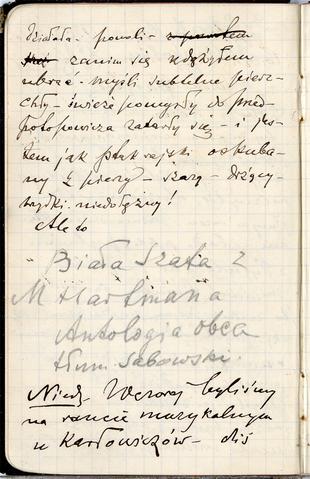 działała - powoli -
zanim się zdążyłem
ubrać - myśli subtelne pierz-
chły - świeże pomysły do Przed-
potopowicza zatarły się - i jes-
tem jak ptak rajski oskuba-
ny z pierzy - szary - drżący -
brzydki, niedołężny!
Ale to
Biała Szata z
M Hartmana
Antologia obca
tłum. Sabowski.
Niedz. Wczoraj byliśmy
na raucie muzykalnym
u Karłowiczów - dziś